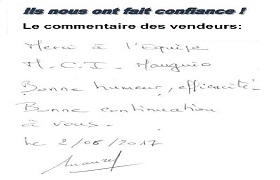 Ils nous ont fait confiance !
Le commentaire des vendeurs:
Merci à l'Equipe
M.C.I. Mauguio
Bonne humeur, efficacité.
Bonne continuation
à vous.
Le 2/06/2017